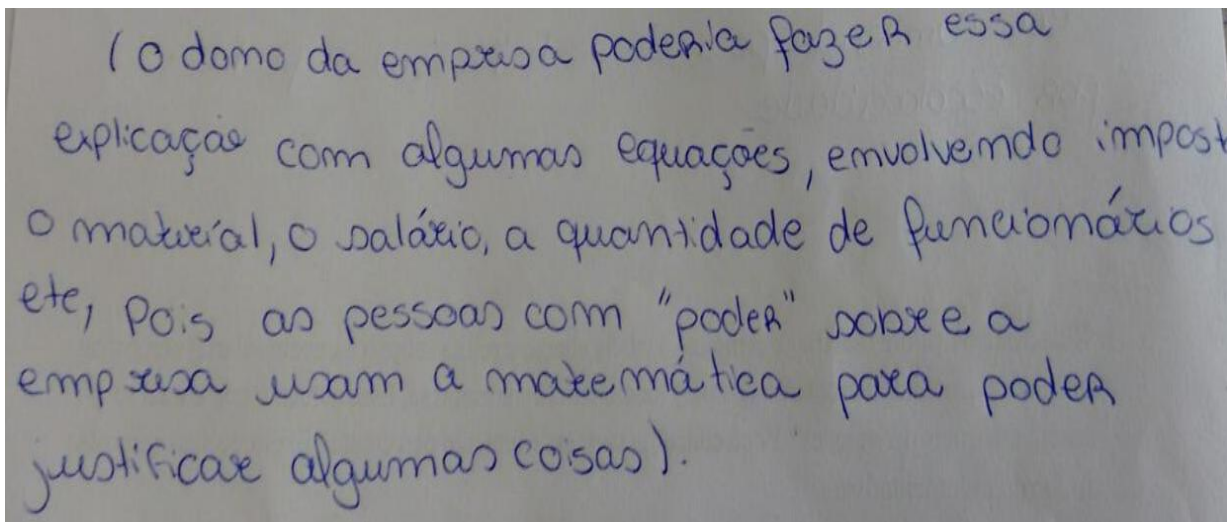 (O domo da empresa poderia fazer essa
explicação com algumas equações, emvolvemdo impost
o material, o salário, a quantidade de funcionários
etc, Pois as pessoas com "poder" sobre a
empresa usam a matemática para poder
justificar algumas coisas).